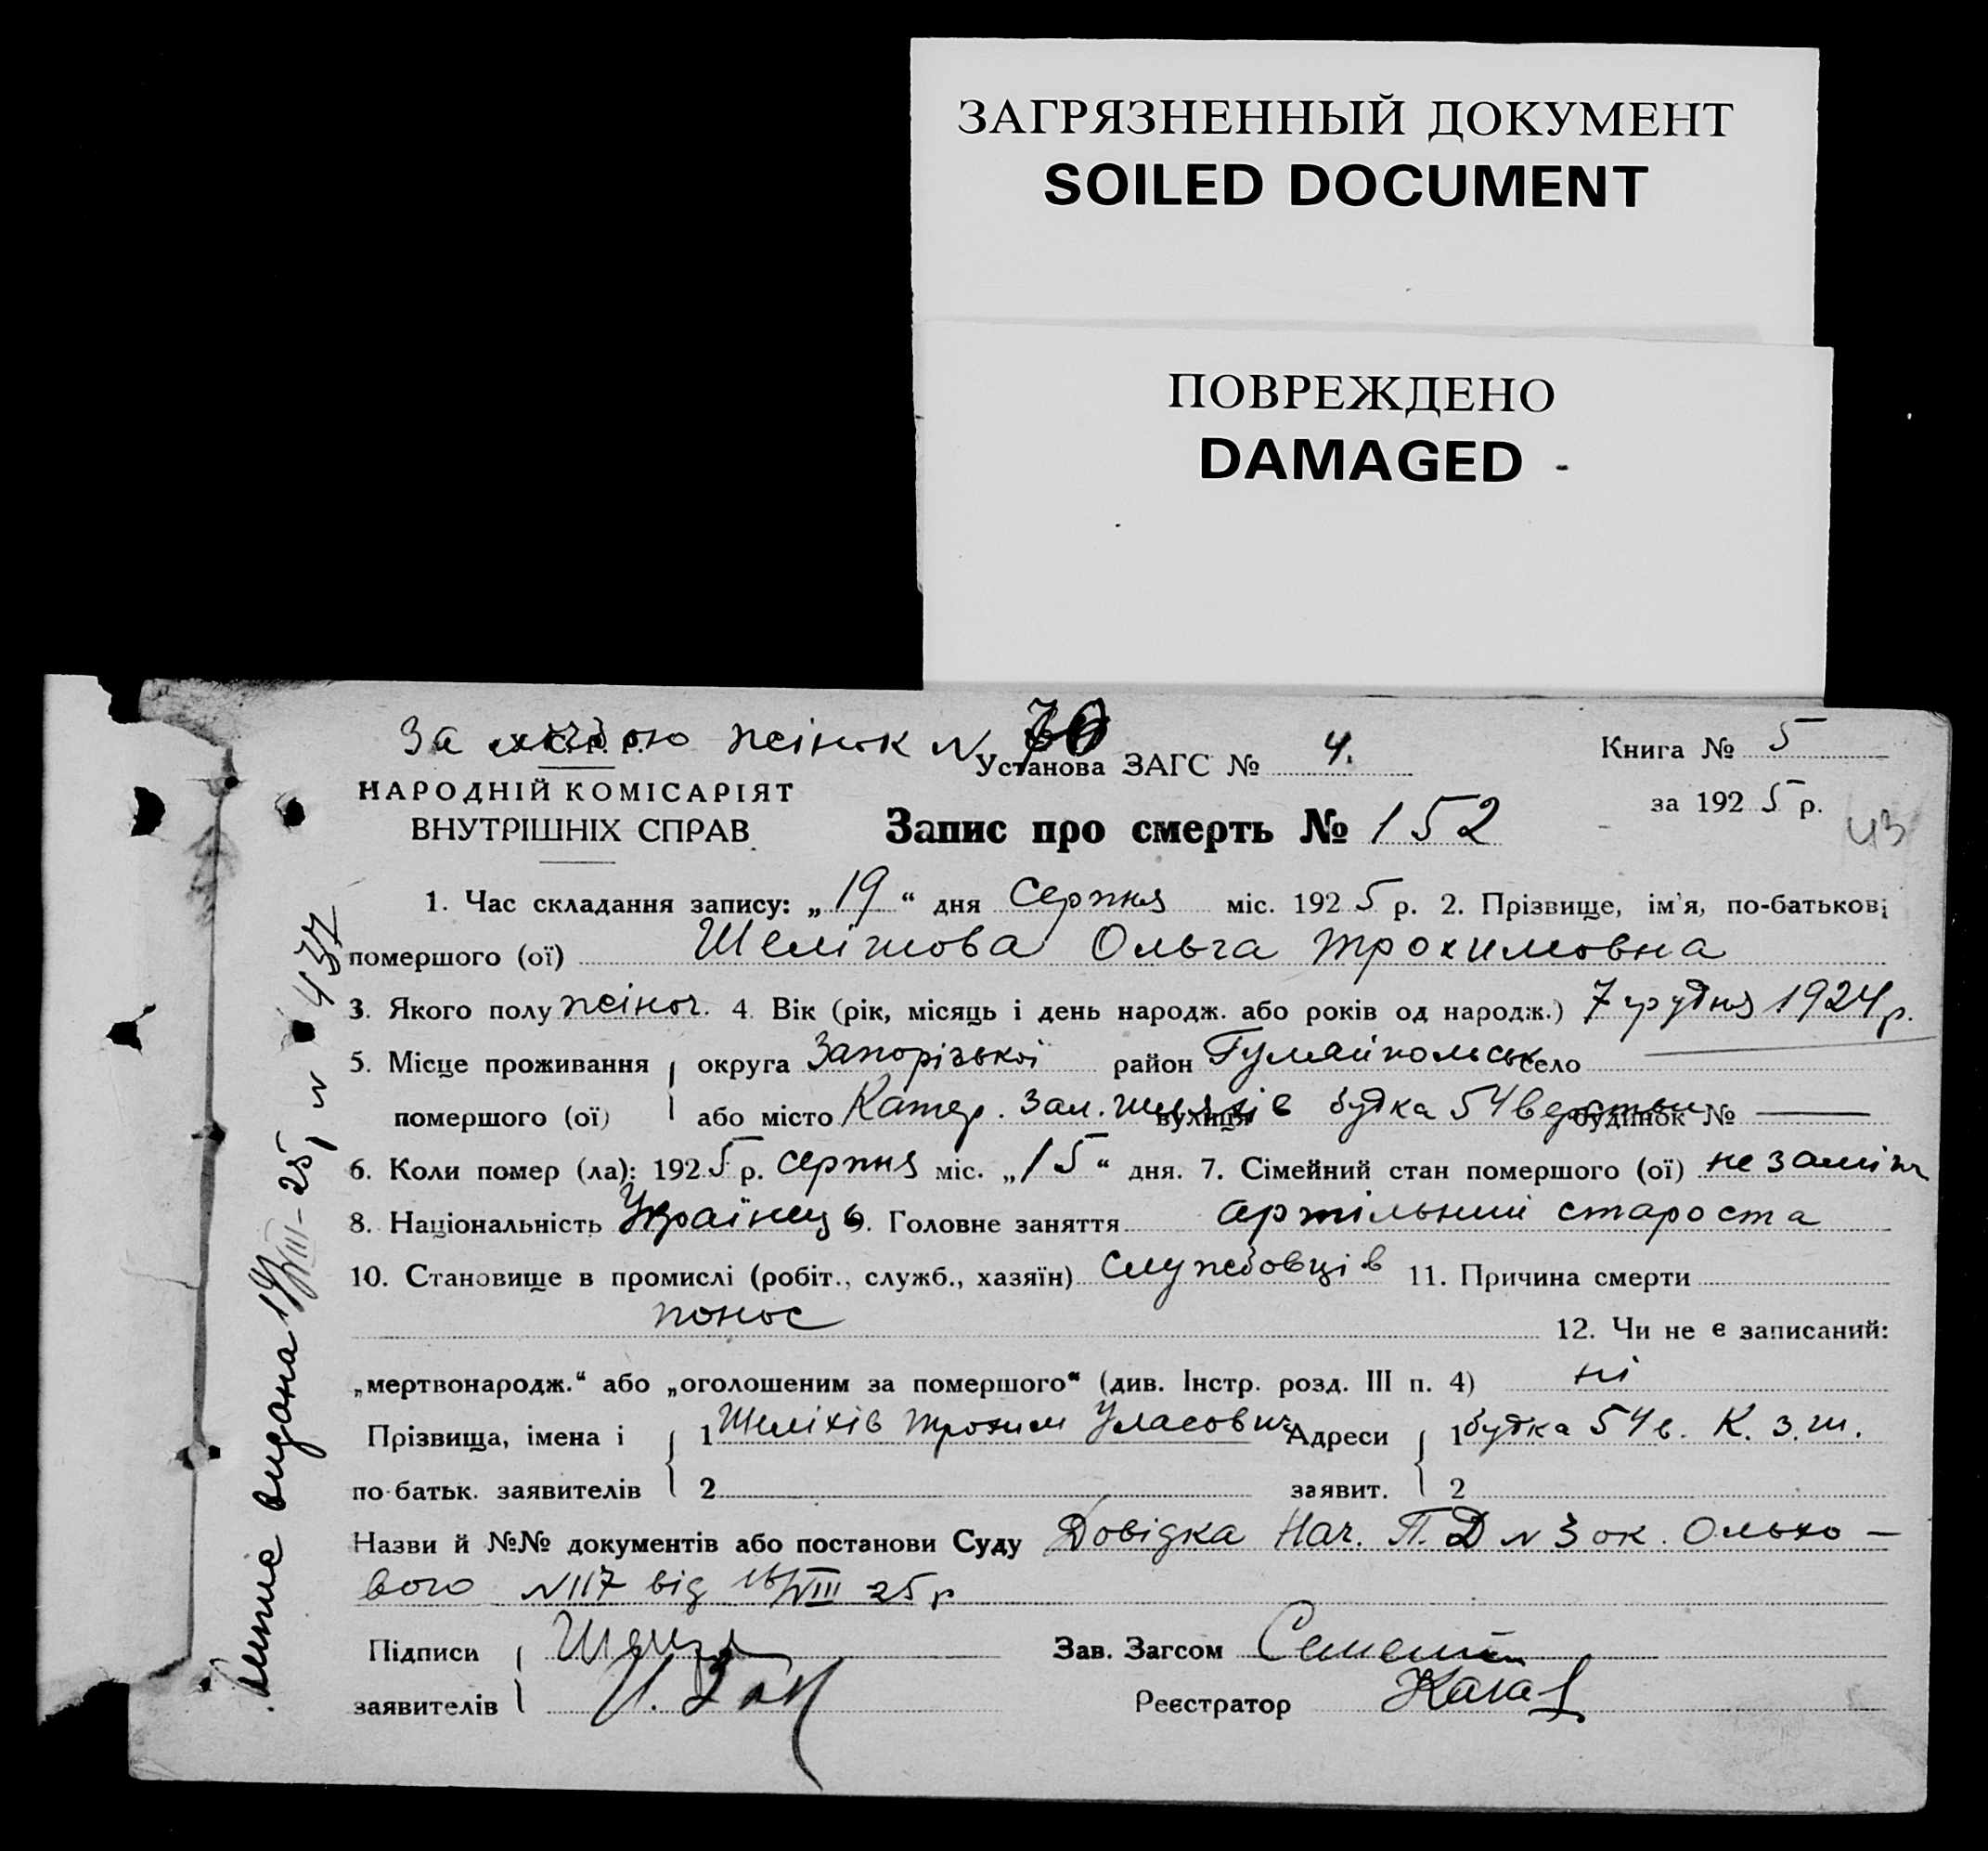 ЗАГРЯЗНЕННЫЙ ДОКУМЕНТ
SOILED DOCUMENT
ПОВРЕЖДЕНО
DAMAGED
За лічбою жінок №
Установа ЗАГС № 4.
Книга № 5
НАРОДНІЙ КОМІСАРІЯТ
ВНУТРІШНІХ СПРАВ
за 1925 р.
43
Запис про смерть № 152
1. Час складання запису: „19“ дня Серпня міс. 1925 р. 2. Прізвище, ім'я, по-батькові
помершого (ої) Шеліхова Ольга Трохимовна
3. Якого полу жіноч. 4. Вік (рік, місяць і день народж. або років од народж.) 7 грудня 1924 р.
5. Місце проживання округа Запорізької район Гуляйпольськ село
помершого (ої) або місто Катер. Зал. шляхів вулиця будка 54 версти будинок №
6. Коли помер (ла): 1925 р. серпня міс. „15“ дня. 7. Сімейний стан помершого (ої) не заміж
8. Національність Українець 9. Головне заняття артільний староста
10. Становище в промислі (робіт., служб., хазяїн) службовців 11. Причина смерти
понос 12. Чи не є записаний:
„мертвонародж.“ або „оголошеним за помершого“ (див. Інстр. розд. III п. 4) ні
Прізвища, імена і 1 Шеліхів Трохим Уласович Адреси 1 будка 54 в. К. З. ш.
по-батьк. заявителів 2 заявит. 2
Назви й №№ документів або постанови Суду Довідка Нач. П. Д № 3 ок. Ольхо–
вого № 117 від 16/VIII 25 р
Підписи Зав. Загсом
заявителів Реєстратор
видана 19/VIII-25, № 437